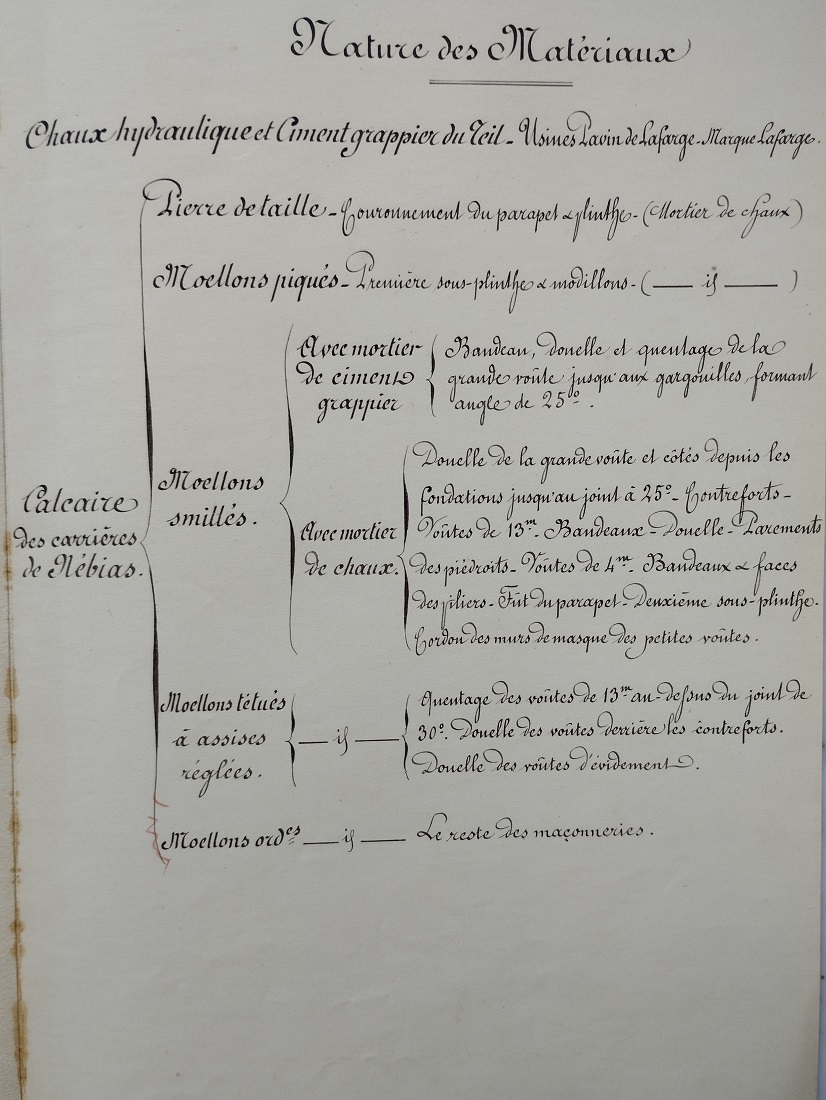 Nature des Matériaux
Chaux hydraulique et Ciment grappier du Teil - Usines Pavin de Lafarge - Marque Lafarge.
Pierre de taille - Couronnement du parapet & plinthe - (Mortier de chaux)
Moellons piqués - Première sous-plinthe & modillons - ( — id — )
Calcaire
des carrières
de Nébias.
Moellons
smillés.
Avec mortier
de ciment
grappier
Bandeau, douelle et queutage de la
grande voûte jusqu'aux gargouilles, formant
angle de 25º.
Avec mortier
de chaux.
Douelle de la grande voûte et côtés depuis les
fondations jusqu'au joint à 25º - Contreforts -
Voûtes de 13m - Bandeaux - Douelle - Parements
des piédroits - Voûtes de 4m - Bandeaux & faces
des piliers - Fût du parapet - Deuxième sous-plinthe.
Cordon des murs de masque des petites voûtes.
Moellons tétués
à assises
réglées.
— id —
Queutage des voûtes de 13m au-dessus du joint de
30º. Douelle des voûtes derrière les contreforts.
Douelle des voûtes d'évidement.
Moellons ordes — id — Le reste des maçonneries.